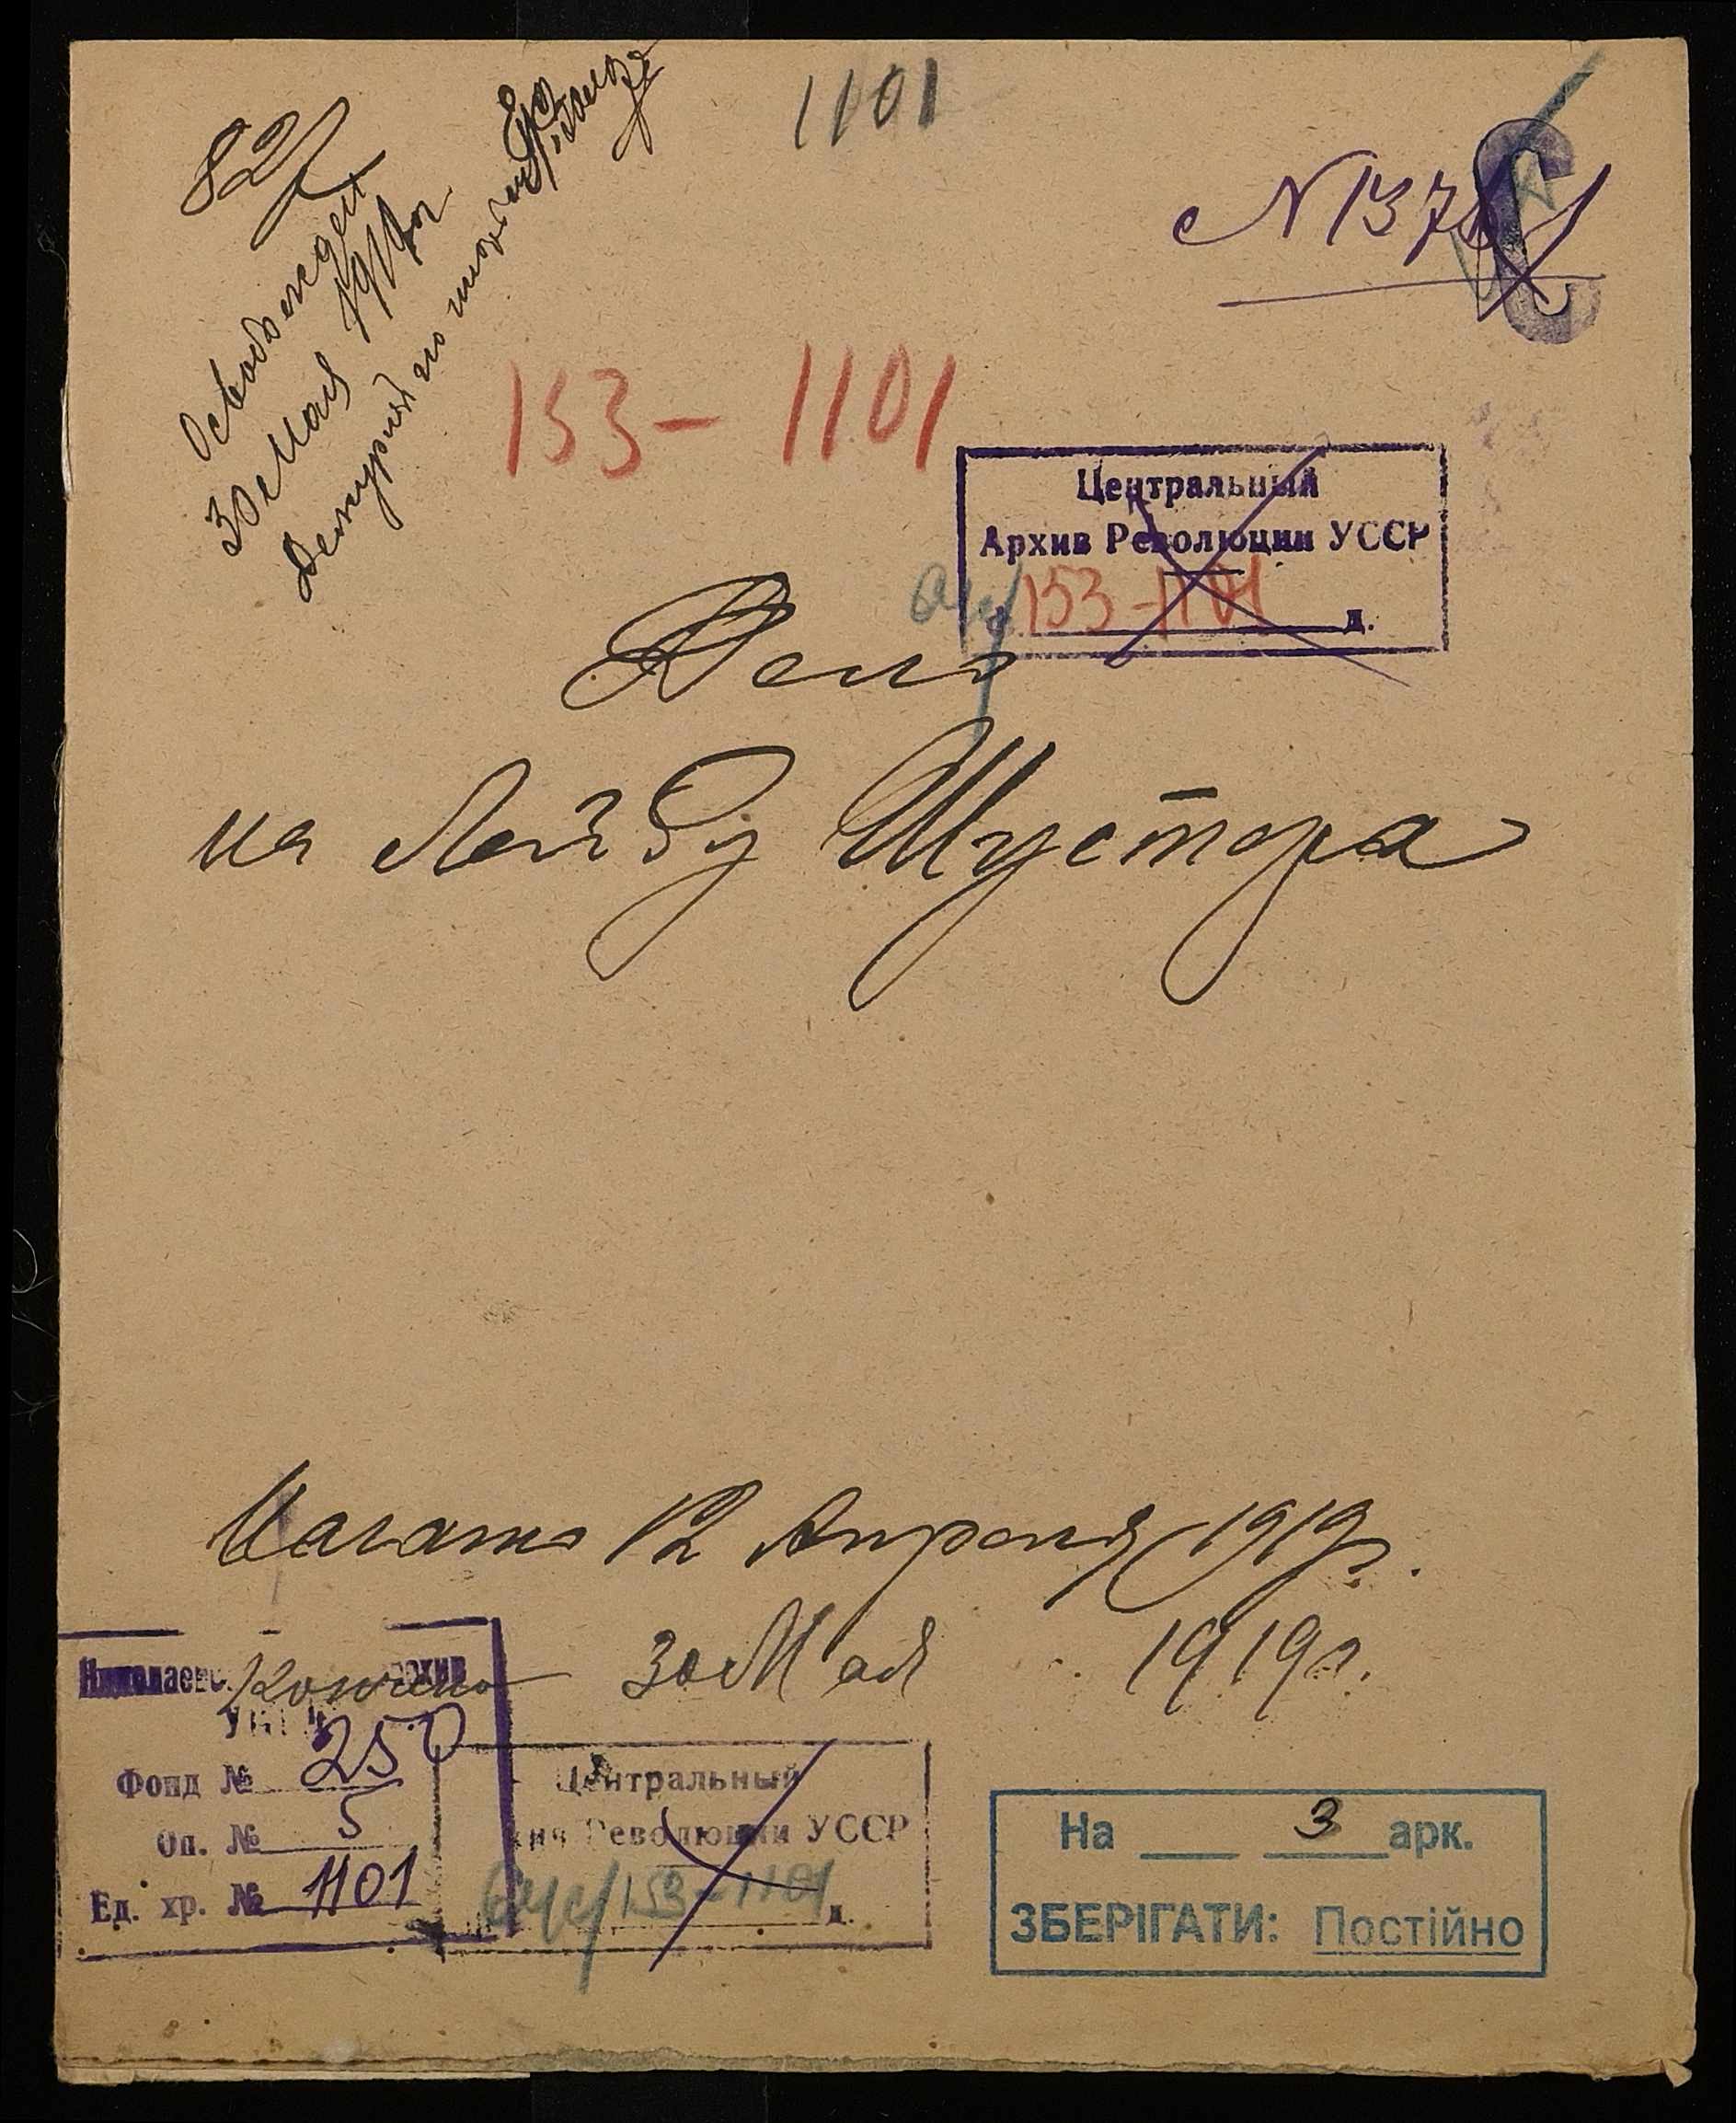 82
1101
Освобожден
30 Мая 1919г
Дежурный по
№ 137
153 - 1101
Центральный
Архив Революции УССР
153-1101 д.
Дело
на Лейбу Шустера
Начато 12 Апреля 1919г.
Кончено 30 Мая 1919г.
Николаевс. архив
Фонд № 250
Оп. № 5
Ед. хр. № 1101
Центральный
Революции УССР
153-1101 д.
На ___ 3 арк.
ЗБЕРІГАТИ: Постійно